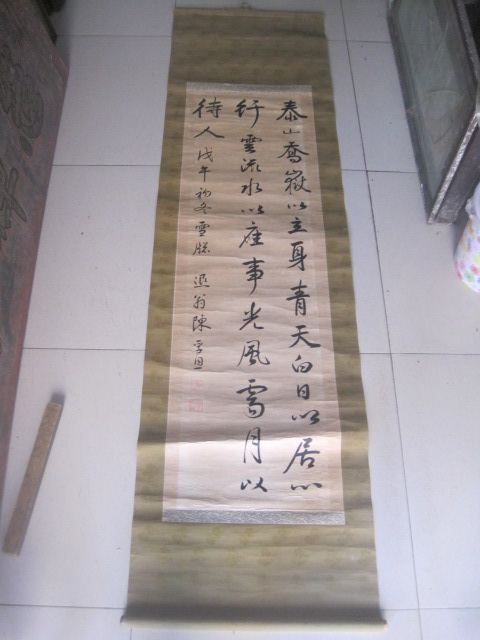 泰山喬嶽以立身青天白日以居心
行雲流水以應事光風霽月以
待人 戊午初冬雪牕 退翁陳孚恩